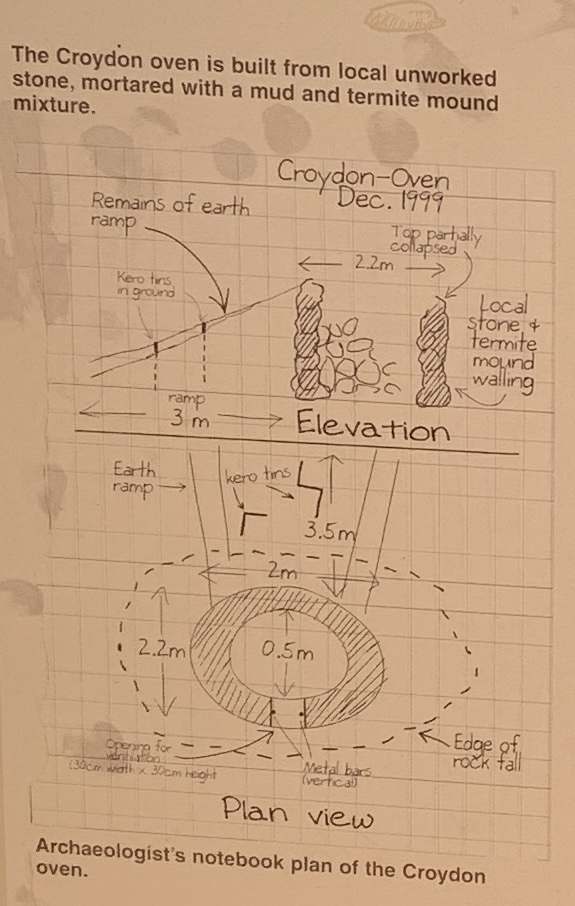 The Croydon oven is built from local unworked
stone, mortared with a mud and termite mound
mixture.
Croydon-Oven
Dec. 1999
Remains of earth
ramp
Top partially
collapsed
2.2m
Kero tins
in ground
Local
stone &
termite
mound
walling
ramp
3 m
Elevation
Earth
ramp
kero tins
3.5m
2m
2.2m
0.5m
Opening for
ventilation
(30cm width x 30cm height
Metal bars
(vertical)
Edge of
rock fall
Plan view
Archaeologist's notebook plan of the Croydon
oven.